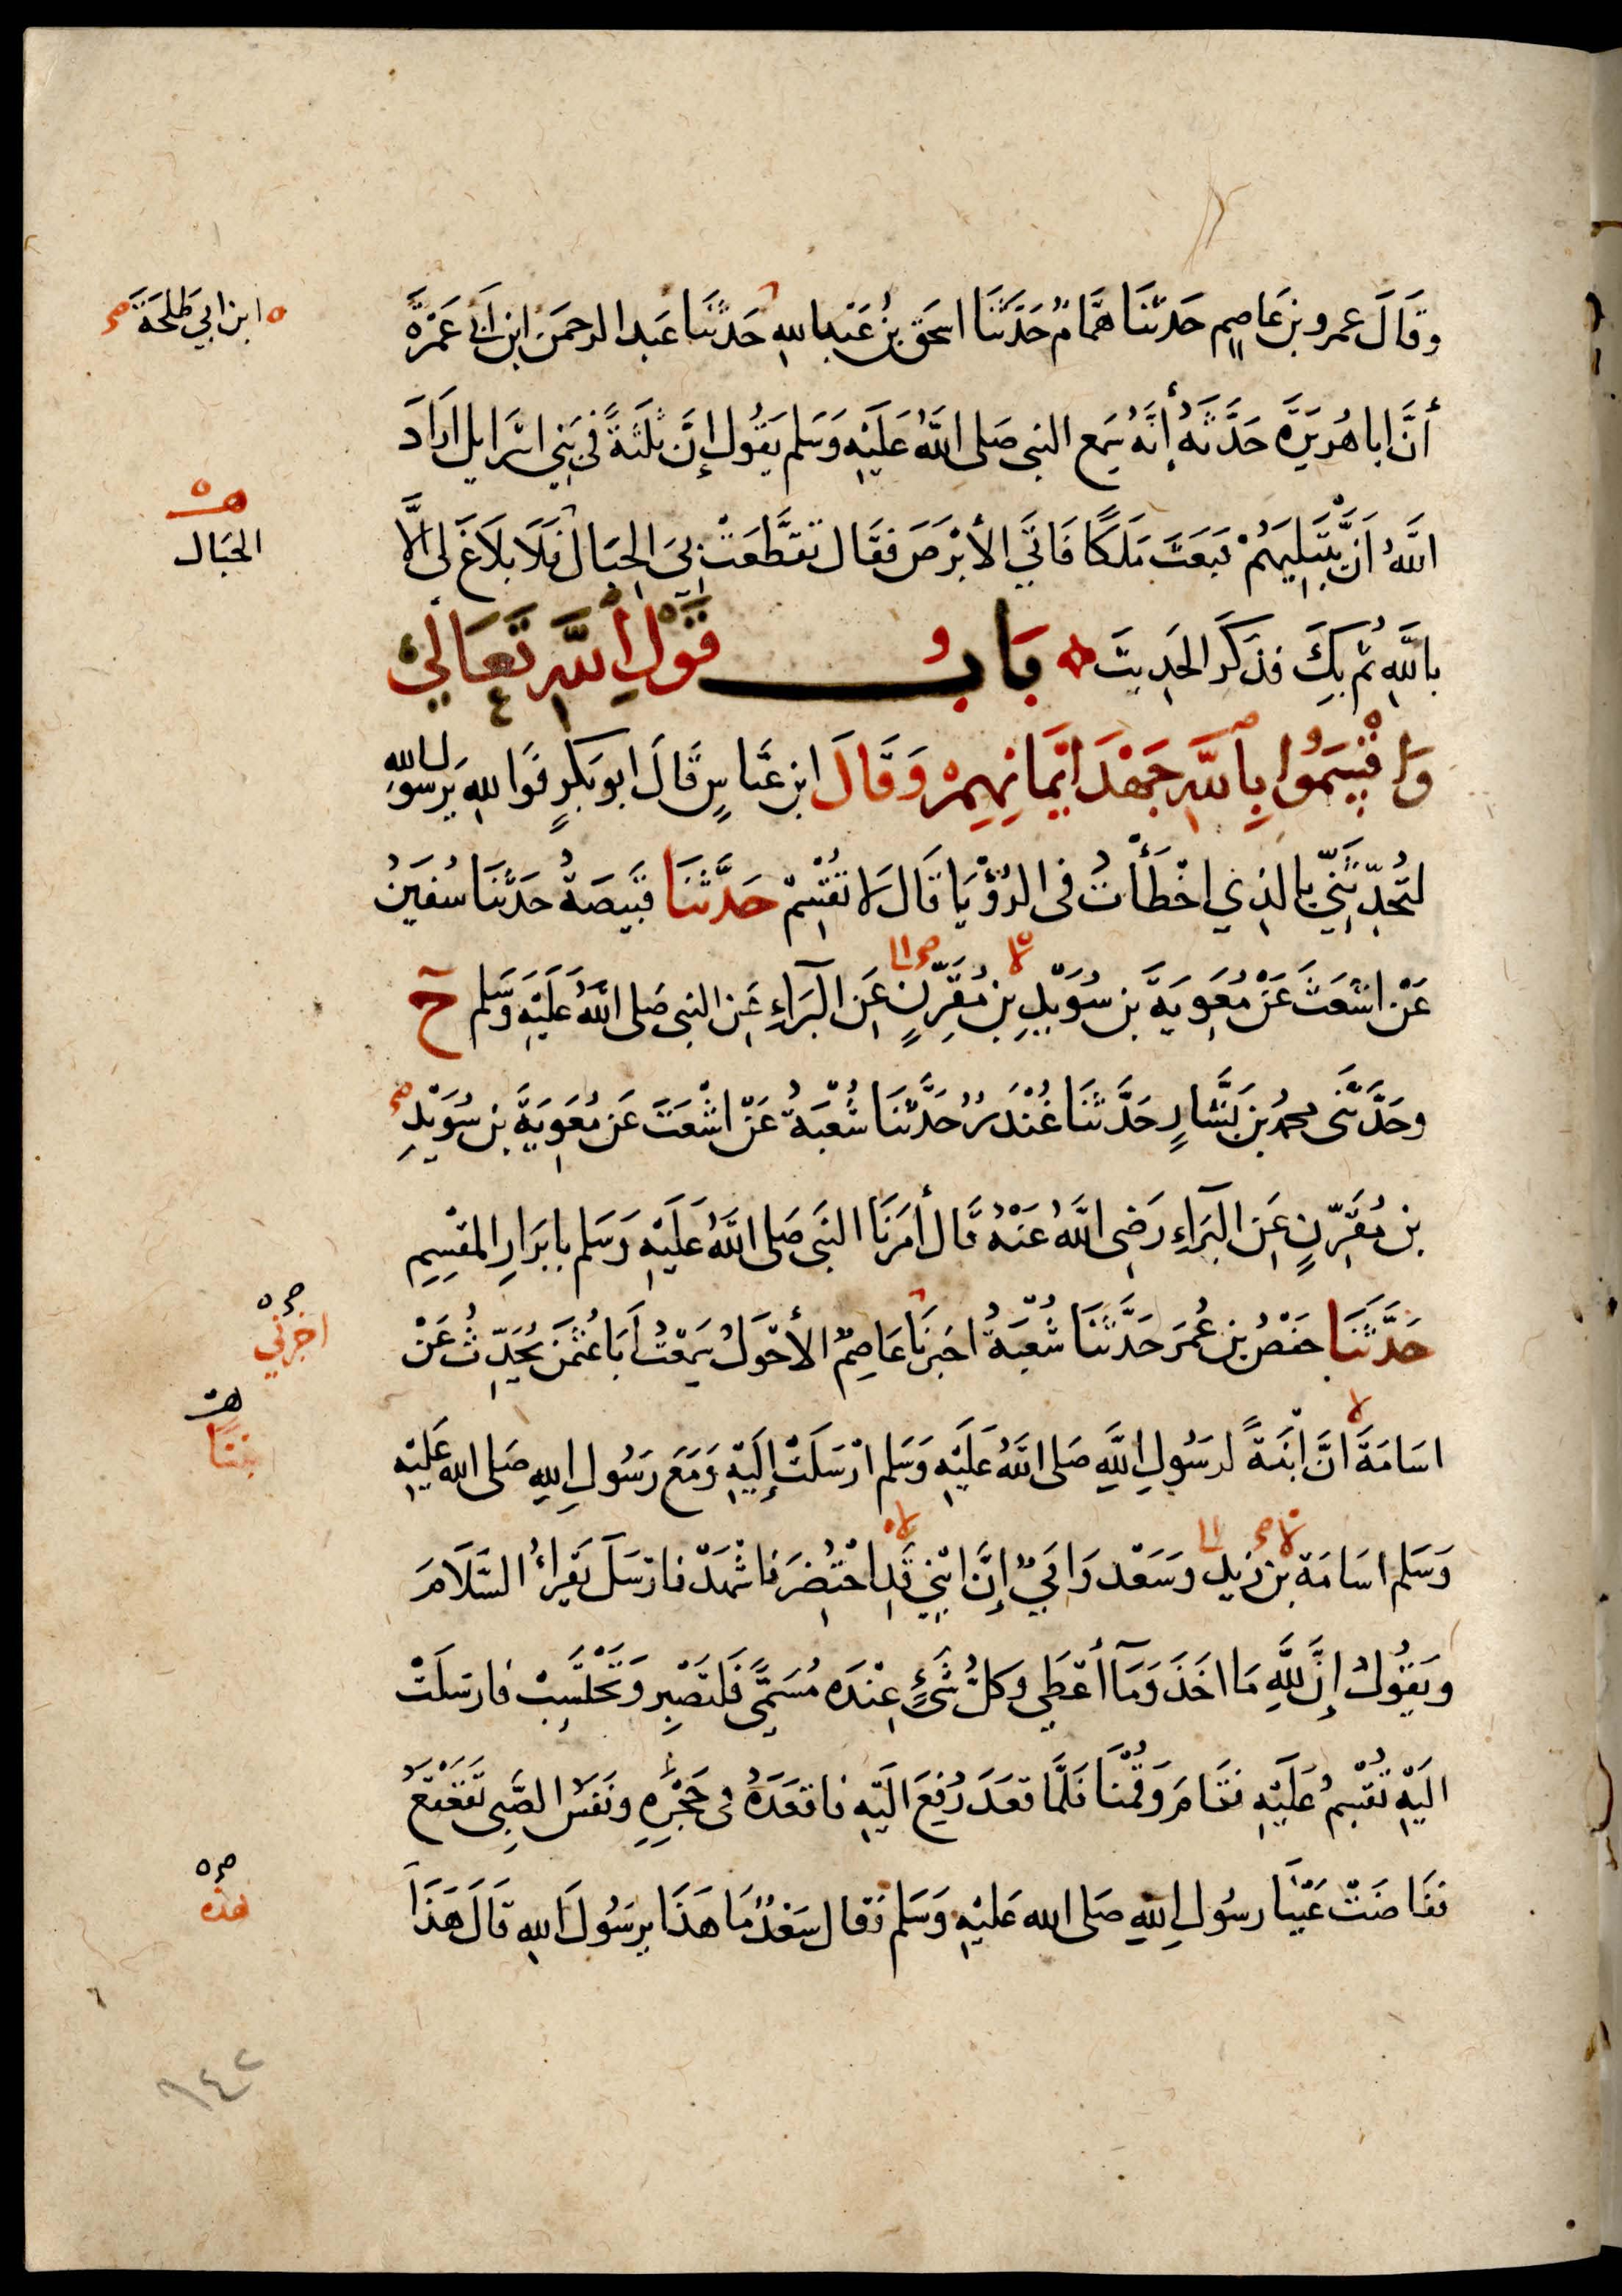 وقَالَ عمرو بن عَاصِمٍ حَدَّثَنَا هَمَّامٌ حَدَّثَنَا اسحٰق بنُ عَبْدِ اللهِ حَدَّثَنَا عَبد الرحمَن ابن أبي عَمْرَةَ
ابن ابي طَلحَةَ صح
أَنَّ ابا هُرَيرَةَ حَدَّثَهُ أَنَّهُ سَمِع النبي صَلى اللَّهُ عَلَيْهِ وَسَلم يَقُول إِنَّ ثلَثَةً في بَنِي اسْرَايل ارَادَ
اللَّهُ اَنْ يَبْتَلِيَهُمْ فبَعَثَ مَلَكًا فَاتَي الأَبْرَصَ فقَال تَقَطَّعَتْ بيَ الحِبَال فَلَا بلَاغَ لى اِلَّا
الحَبَال
بِاللَّهِ ثُم بِكَ فذَكَرَ الحَدِيثَ بَابُ قَوْلِ اللَّهِ تَعَالَي
وَاقْسَمُوا بِاللَّهِ جَهْدَ ايْمَانِهِمْ وَقَالَ ابن عَبَّاسٍ قَالَ ابو بَكرٍ فوَاللهِ يَرسُولَ الله
لتُحَدِّثَنِّي بالذِي اخْطَأْتُ فى الرُّؤْيَا قَالَ لَا تُقْسِمْ حَدَّثَنَا قَبيصَةُ حَدَّثَنَا سُفيٰنُ
عَنْ اشْعَثَ عَنْ مُعَوِيَةَ بن سُوَيْدِ بنِ مُقَرِّنٍ عَنِ البَرَاءِ عَنِ النبى صَلى اللَّهُ عَلَيْهِ وَسَلم ح
وحَدَّثَنى محمدُ بن بَشَّارٍ حَدَّثَنَا غُنْدَرٌ حَدَّثَنَا شُعْبَةُ عَنْ اشْعَثَ عَن مُعَوِيَةَ بن سُوَيْدِ
بن مُقَرِّنٍ عَنِ البَرَاءِ رَضِى اللَّهُ عَنْهُ قَال أَمَرَنَا النبَى صَلى اللَّهُ عَلَيْهِ وَسَلم بِابرَارِ المُقْسِمِ
حَدَّثَنَا حَفْصُ بن عُمَرَ حَدَّثَنَا شُعْبَةُ اخبَرَنَا عَاصِمٌ الأَحْوَلُ سَمِعْتُ اَبَا عُثمٰنَ يُحَدِّثُ عَنْ
اخبرني
اسَامَةَ انَّ ابْنَةً لرَسُولِ اللَّهِ صَلى اللَّهُ عَلَيْهِ وَسَلم ارْسَلَتْ إِلَيْهِ وَمَعَ رَسُولِ اللهِ صَلى الله عَلَيْهِ
بنتًا
وَسَلم اسَامَة بن زَيدٍ وسَعْد وَابَيٌّ إِنَّ ابْنِي قَدِ احْتُضِرَ فاشْهَدْنا فارسَلَ يَقْرَاُ السَّلَامَ
ويَقُولُ إِنَّ للَّهِ مَا اخَذَ وَمَآ أَعْطَي وكلُّ شَىْءٍ عِنْدَه مُسَمًّى فَلتَصْبِر وَتَحْتَسِبْ فارسَلَتْ
الَيْهِ تُقْسِمُ عَلَيْهِ فقَامَ وَقُمْنَا فَلَمَّا قعَدَ رُفِعَ الَيْهِ فاقعَدَهُ فى حَجْرِهِ ونَفسُ الصَّبِى تَقَعْقَعُ
ففَاضَتْ عَيْنا رسُولِ اللهِ صَلى الله عَليْهِ وَسَلم فقال سَعْدٌ مَا هَذَا يرسُولَ اللهِ قَالَ هَذَا
هذه
٦٤٢